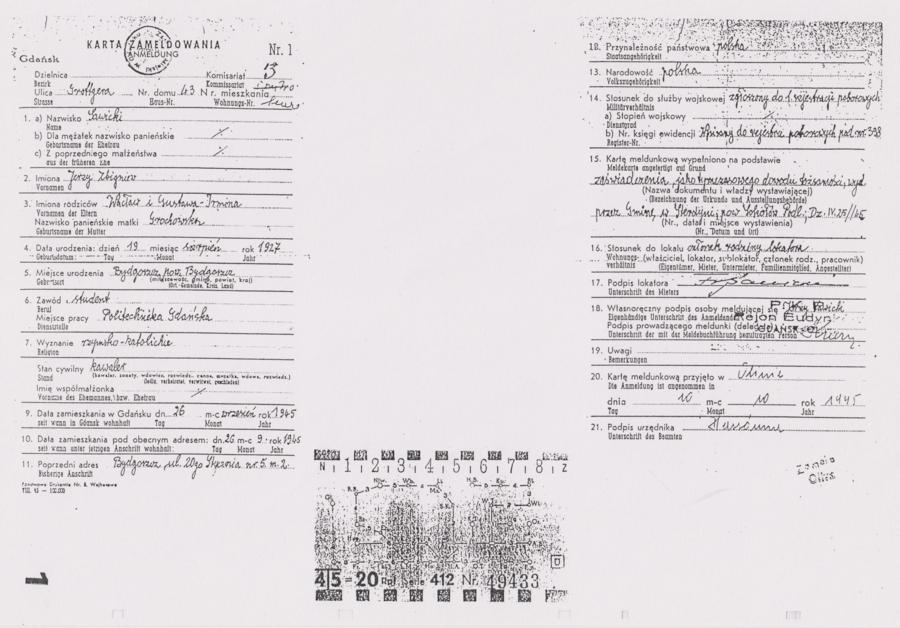 KARTA ZAMELDOWANIA
ANMELDUNG
Nr. 1
Gdańsk
Dzielnica
Bezirk
Komisariat 13
Kommissariat
Ulica Grottgera Nr. domu 43 Nr. mieszkania
Strasse Haus-Nr. Wohnungs-Nr.
1. a) Nazwisko Sawicki
Name
b) Dla mężatek nazwisko panieńskie
Geburtsname der Ehefrau
c) Z poprzedniego małżeństwa
aus der früheren Ehe
2. Imiona Jerzy Zbigniew
Vornamen
3. Imiona rodziców Wacław i Gustawa-Irmina
Vornamen der Eltern
Nazwisko panieńskie matki Grochowska
Geburtsname der Mutter
4. Data urodzenia: dzień 19 miesiąc sierpień rok 1927
Geburtsdatum: Tag Monat Jahr
5. Miejsce urodzenia Bydgoszcz pow. Bydgoszcz
Geburtsort (miejscowość, gmina, powiat, kraj)
(Ort-Gemeinde, Kreis, Land)
6. Zawód student
Beruf
Miejsce pracy Politechnika Gdańska
Dienststelle
7. Wyznanie rzymsko-katolickie
Religion
Stan cywilny kawaler
Stand
Imię współmałżonka
Vorname des Ehemannes, bzw. Ehefrau
9. Data zamieszkania w Gdańsku dn. 26 m-c wrzesień rok 1945
seit wann in Gdańsk wohnhaft Tag Monat Jahr
10. Data zamieszkania pod obecnym adresem: dn. 26 m-c 9. rok 1945
seit wann unter jetzigen Anschrift wohnhaft: Tag Monat Jahr
11. Poprzedni adres Bydgoszcz ul. 20go Stycznia nr. 5. m. 2.
Bisherige Anschrift
1
N 1 2 3 4 5 6 7 8 Z
45 = 20 412 Nr. 49433
Przynależność państwowa polska
Staatsangehörigkeit
13. Narodowość polska
Volkszugehörigkeit
14. Stosunek do służby wojskowej zgłoszony do 1 rejestracji poborowych
Militärverhältnis
a) Stopień wojskowy
Dienstgrad
b) Nr. księgi ewidencji wpisany do rejestru poborowych pod nr. 398
Register-Nr.
15. Kartę meldunkową wypełniono na podstawie
Meldekarte angefertigt auf Grund
zaświadczenia, jako tymczasowego dowodu tożsamości, wyd.
(Nazwa dokumentu i władzy wystawiającej)
(Bezeichnung der Urkunde und Ausstellungsbehörde)
przez Gminę w Sterdyni, pow. Sokołów Podl.
(Nr., data i miejsce wystawienia)
(Nr., Datum und Ort)
16. Stosunek do lokalu członek rodziny lokatora
Wohnungs- (właściciel, lokator, sublokator, członek rodz., pracownik)
verhältnis (Eigentümer, Mieter, Untermieter, Familienmitglied, Angestellter)
17. Podpis lokatora
Unterschrift des Mieters
18. Własnoręczny podpis osoby meldującej się Jerzy Sawicki
Eigenhändige Unterschrift des Anmeldenden
Podpis prowadzącego meldunki
Unterschrift der mit der Meldebuchführung beauftragten Person
19. Uwagi
Bemerkungen
20. Kartę meldunkową przyjęto w
Die Anmeldung ist angenommen in
dnia 10 m-c 10 rok 1945
Tag Monat Jahr
21. Podpis urzędnika
Unterschrift des Beamten